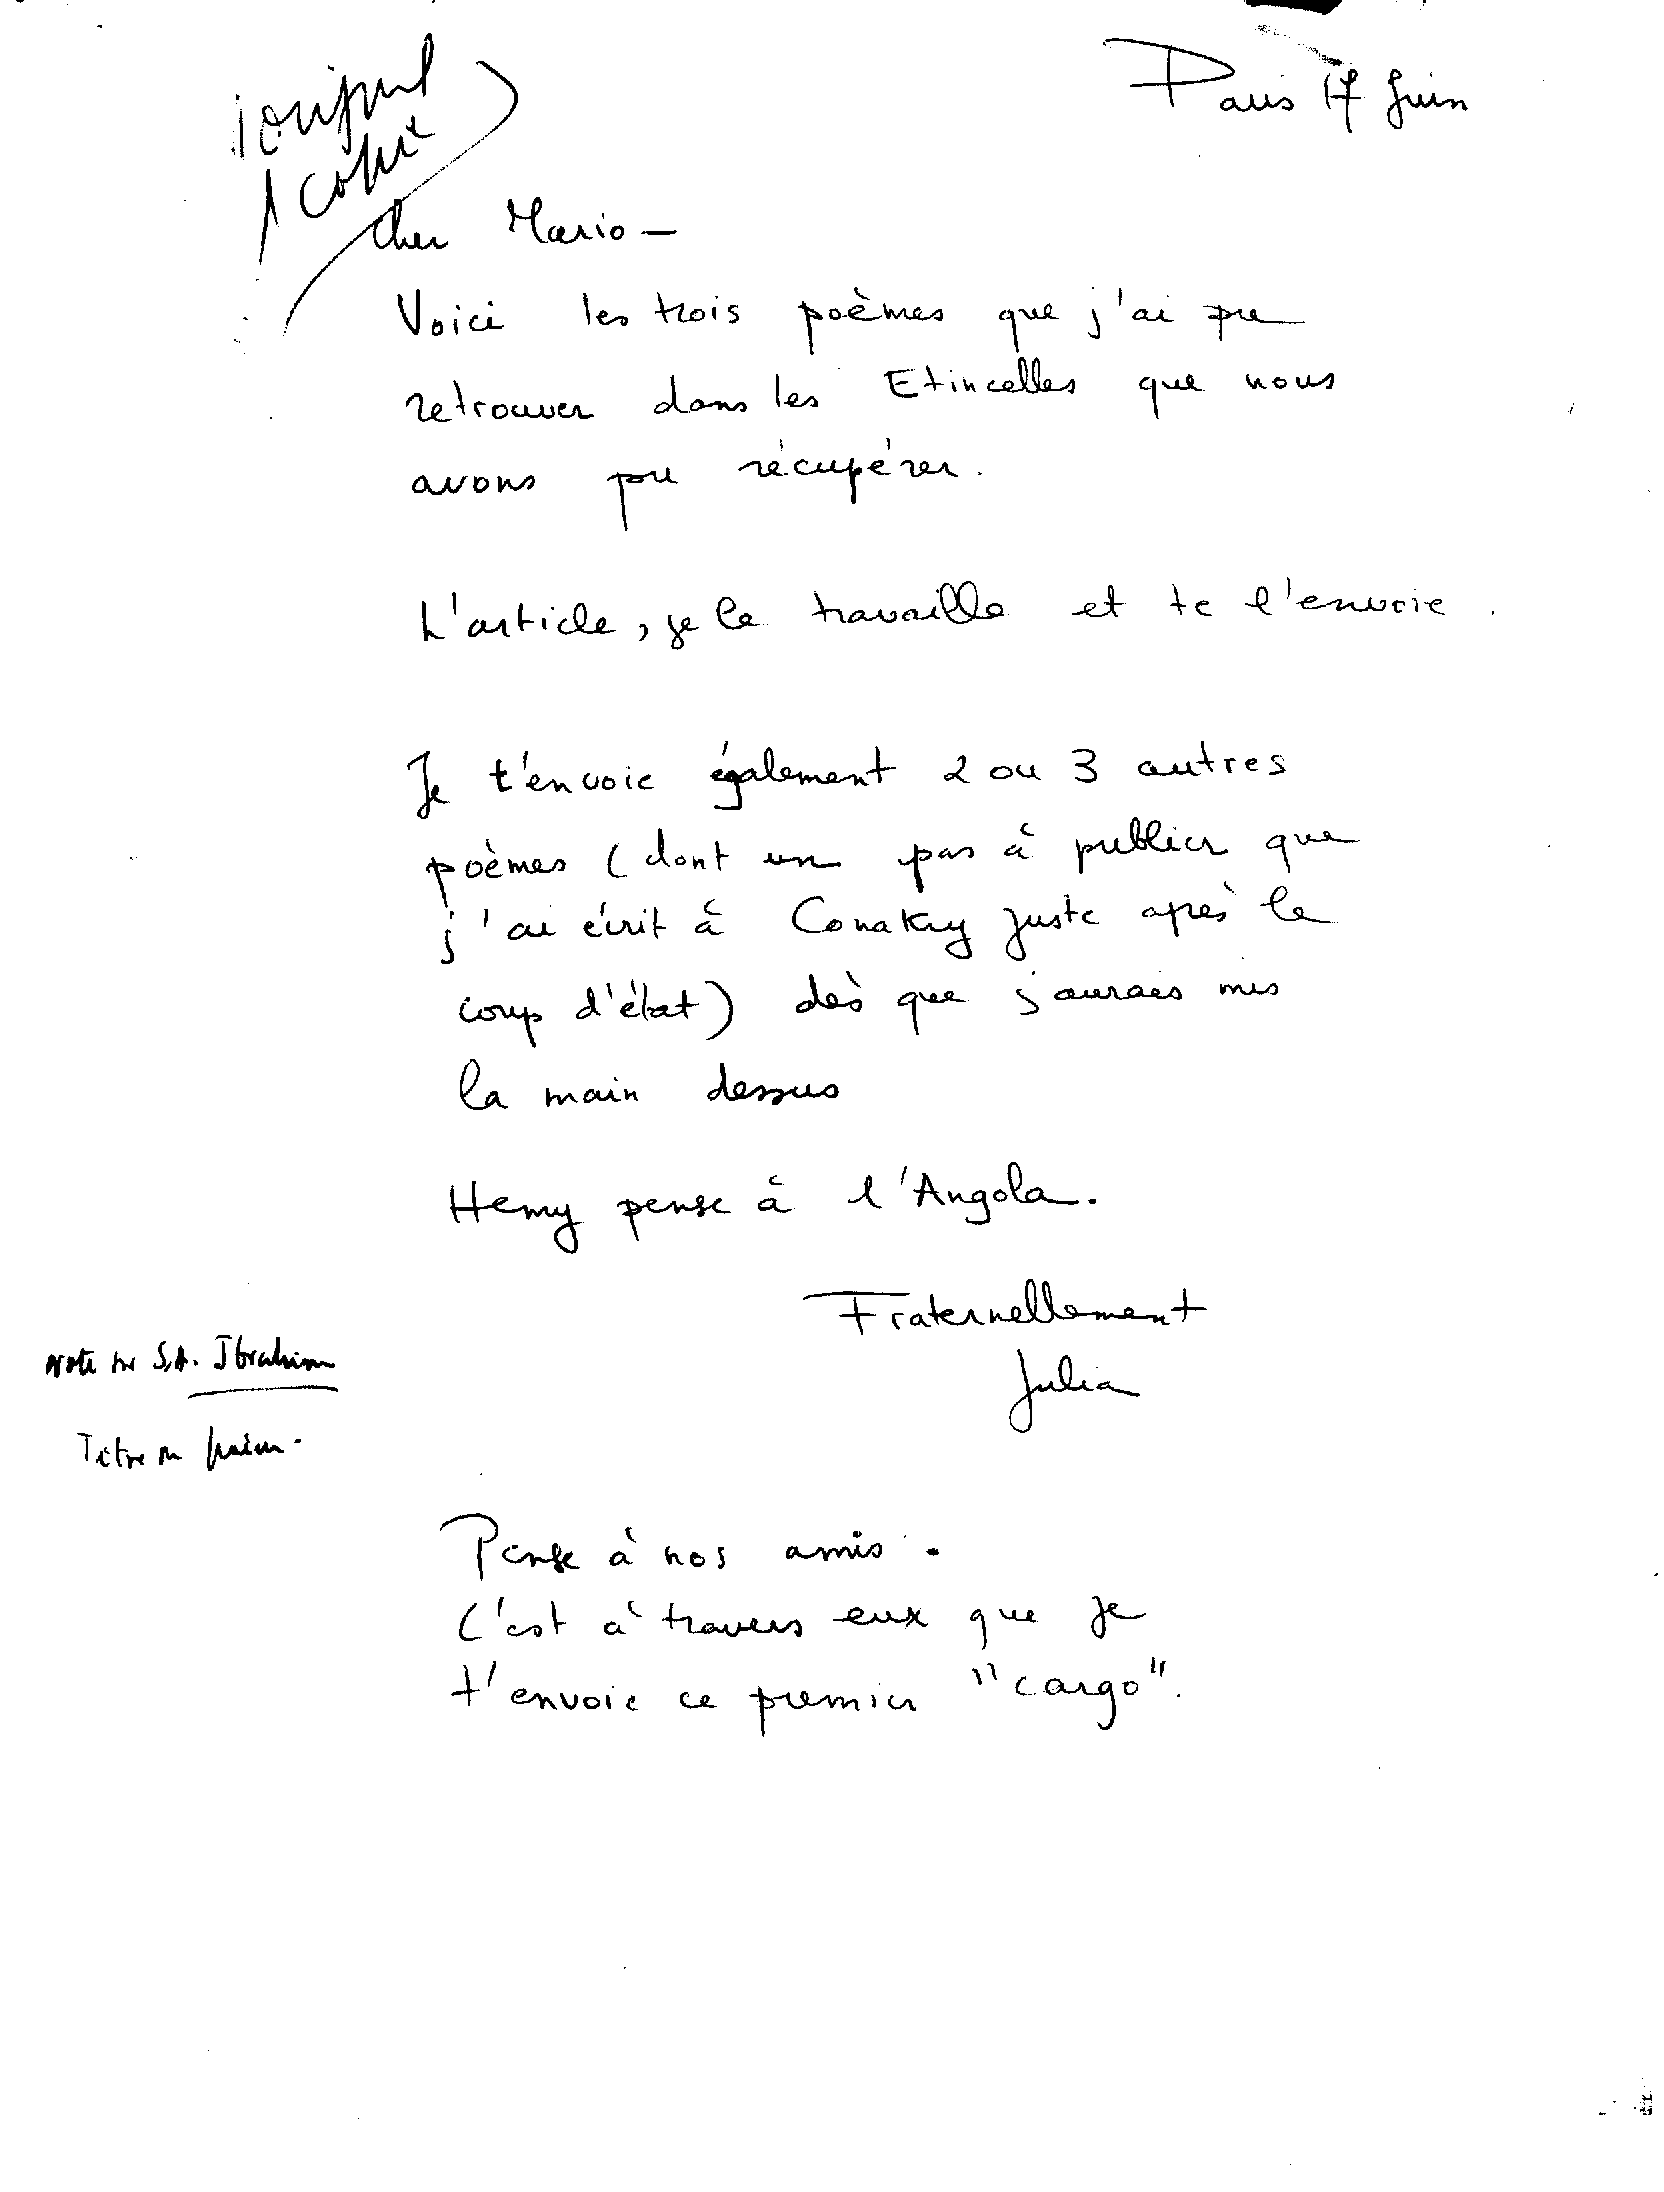 1 original
1 copie
Paris 17 Juin
Cher Mario -
Voici les trois poèmes que j'ai pu
retrouver dans les Etincelles que nous
avons pu récupérer.
L'article, je le travaille et te l'envoie.
Je t'envoie également 2 ou 3 autres
poèmes (dont un pas à publier que
j'ai écrit à Conakry juste après le
coup d'état) dès que j'aurais mis
la main dessus
Henry pense à l'Angola.
Fraternellement
Julia
Note sur S.A. Ibrahim
Titre
Pense à nos amis.
C'est à travers eux que je
t'envoie ce premier "cargo".